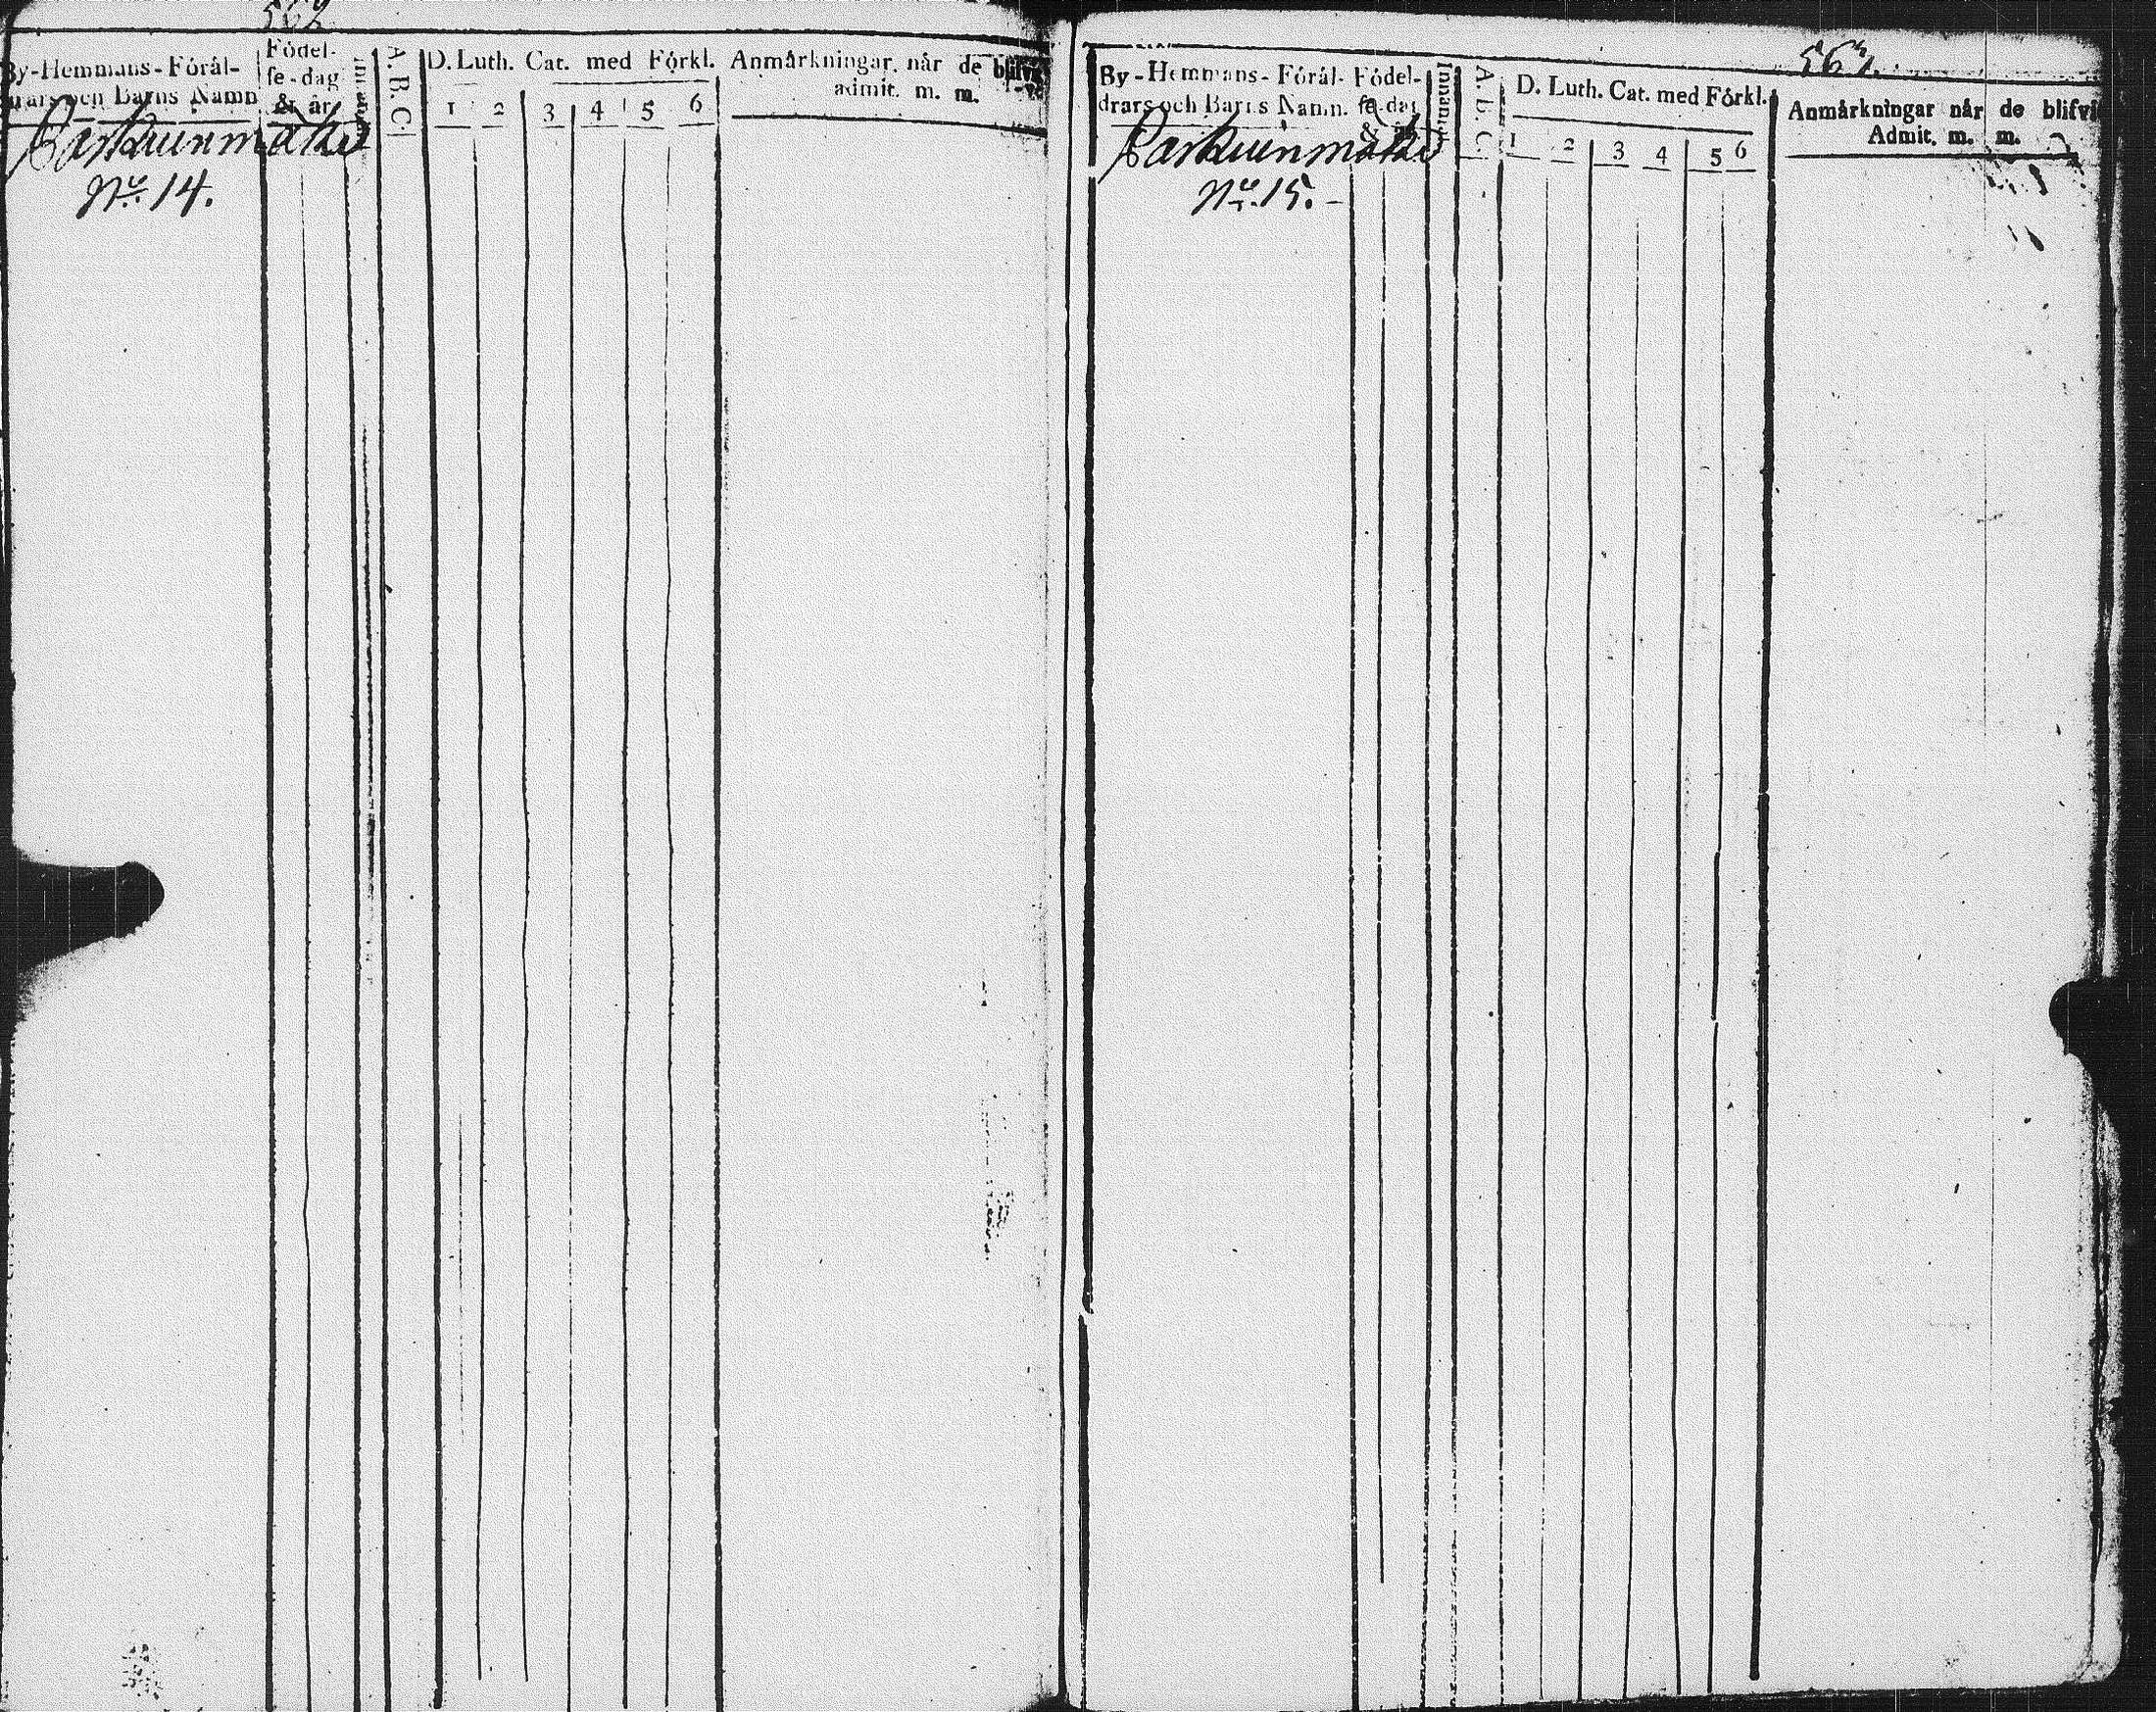 562
By-Hemmans-Förål-
drars och Barns Namn
Födel-
se-dag
& år
Innant
A.B.C.
D. Luth. Cat. med Förkl.
1 2 3 4 5 6
Anmårkningar, når de blifvit
admit. m. m.
Paskuunmäki
No. 14.
563.
By-Hemmans-Förål-
drars och Barns Namn.
Födel-
se-dag
& år
Innant
A.b.C.
D. Luth. Cat. med Förkl.
1 2 3 4 5 6
Anmårkningar når de blifvi
Admit. m. m.
Paskuunmäki
No. 15.